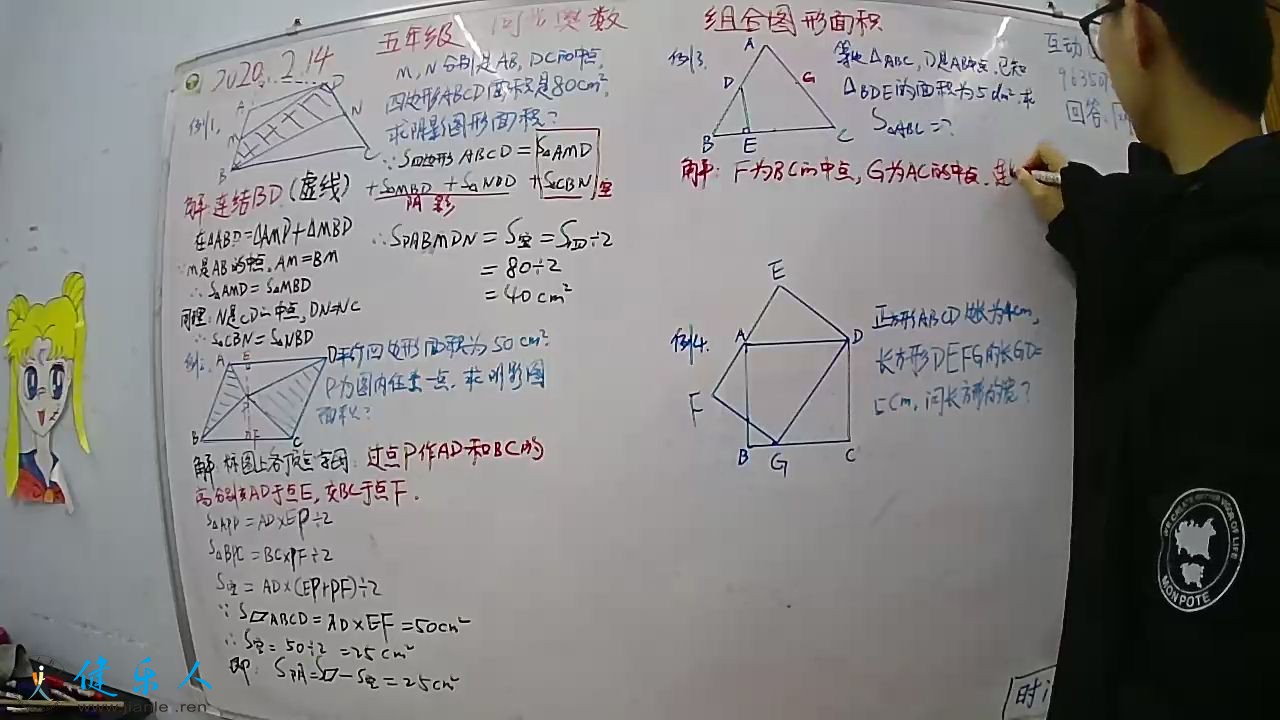 2020.2.14
五年级 同步奥数
例1.
A
D
M
N
B
C
M,N分别是AB,DC的中点,
四边形ABCD面积是80cm²,
求阴影图形面积?
∵S四边形ABCD=S△AMD
+S△MBD+S△NDD+S△CBN 空
阴影
解 连结BD(虚线)
在△ABD=△AMD+△MBD
∵M是AB的中点,AM=BM
∴S△AMD=S△MBD
同理:N是CD的中点,DN=NC
∴S△CBN=S△NBD
∴S阴BMDN=S空=S四÷2
=80÷2
=40cm²
例2.
A
E
D
P
B
F
C
平行四边形面积为50cm²
P为图内任意一点,求阴影图
面积?
解 标图上各顶点字母.过点P作AD和BC的
高分别交AD于点E,交BC于点F.
S△APD=AD×EP÷2
S△BPC=BC×PF÷2
S空=AD×(EP+PF)÷2
∵S▱ABCD=AD×EF=50cm²
∴S空=50÷2=25cm²
即:S阴=S▱-S空=25cm²
组合图形面积
例3.
A
D
G
B
E
C
等边△ABC,D是AB中点,已知
△BDE的面积为5dm²,求
S△ABC=?
解:F为BC的中点,G为AC的中点.连
例4.
E
A
D
F
B
G
C
正方形ABCD边长为4cm,
长方形DEFG的长GD=
5cm,问长方形的宽?
互动
963507
回答:
时
WE CREATE ANOTHER VISION OF LIFE
MONPOTE
健乐人
www.jianle.ren